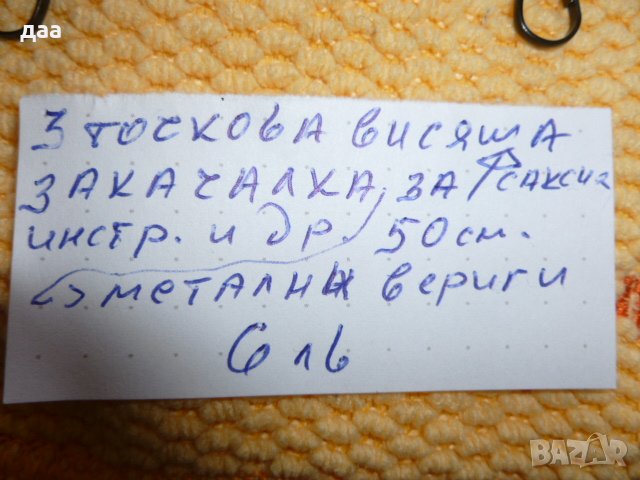 даа
3 точкова висяща
закачалка, за саксия
инстр. и др. 50 см.
с метални вериги
6 лв
BAZAR